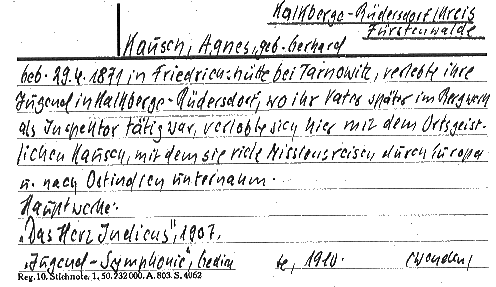 Kalkberge-Rüdersdorf/Kreis
Fürstenwalde
Hausch, Agnes, geb. Gerhard
geb. 29.4.1871 in Friedrichshütte bei Tarnowitz, verlebte ihre
Jugend in Kalkberge-Rüdersdorf, wo ihr Vater später im Bergwerk
als Inspektor tätig war, verlobte sich hier mit dem Ortsgeist-
lichen Hausch, mit dem sie viele Missionsreisen durch Europa
u. nach Ostindien unternahm.
Hauptwerke:
„Das Herz Indicus", 1907.
„Jugend-Symphonie", Gedichte, 1910. (wenden)
Reg. 10. Stichnote. 1, 50. 232 000. A. 803. S. 4062